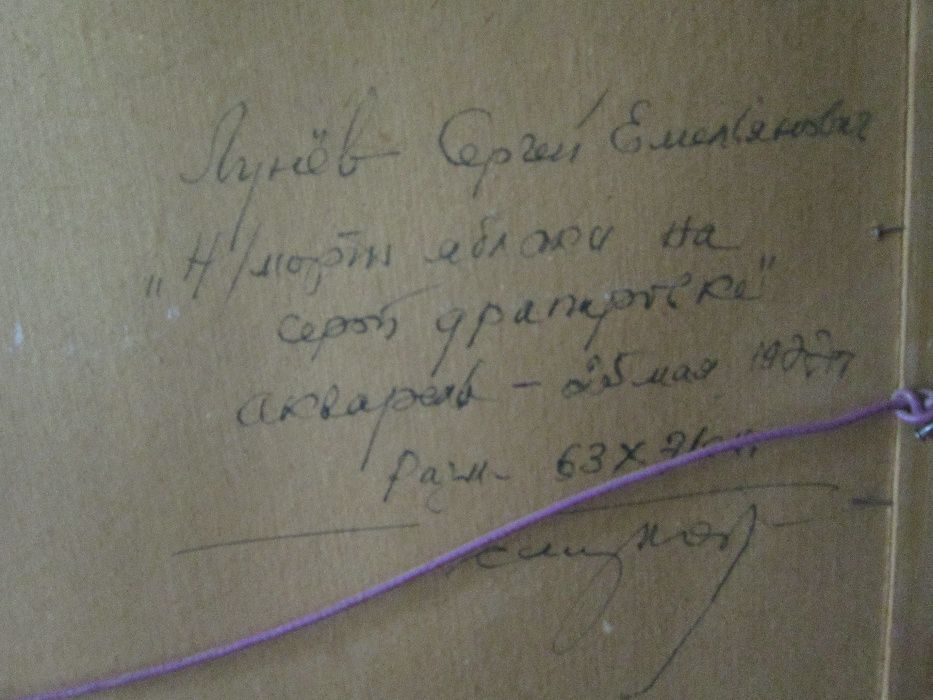 Лунёв Сергей Емельянович
„Н/морт яблоки на
серой драпировке"
акварель – 26 мая
разм. 63 х 71 см